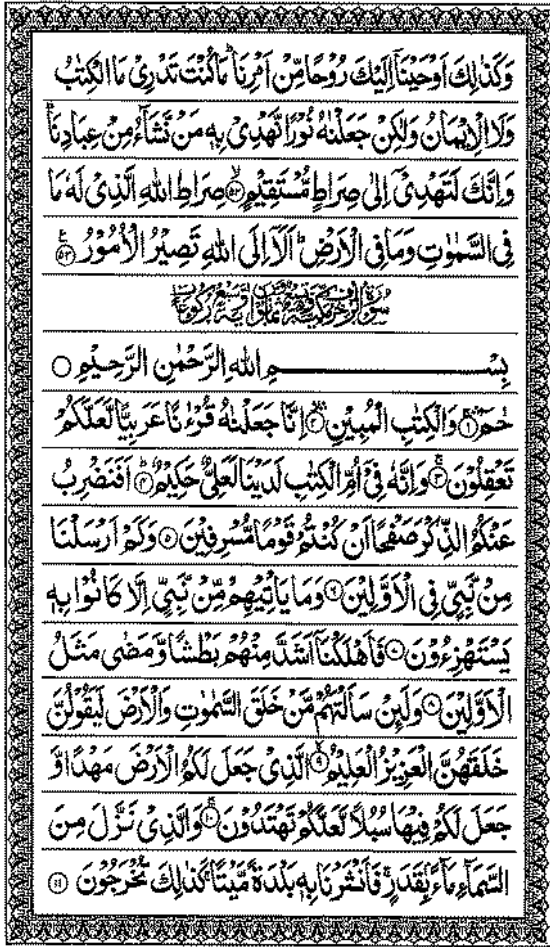 وَكَذٰلِكَ اَوْحَيْنَاۤ اِلَيْكَ رُوْحًا مِّنْ اَمْرِنَا ؕ مَا كُنْتَ تَدْرِىْ مَا الْكِتٰبُ
وَلَا الْاِيْمَانُ وَلٰكِنْ جَعَلْنٰهُ نُوْرًا نَّهْدِىْ بِهٖ مَنْ نَّشَآءُ مِنْ عِبَادِنَا ؕ
وَاِنَّكَ لَتَهْدِىْۤ اِلٰى صِرَاطٍ مُّسْتَقِيْمٍ ۙ﴿۵۲﴾ صِرَاطِ اللّٰهِ الَّذِىْ لَهٗ مَا
فِى السَّمٰوٰتِ وَمَا فِى الْاَرْضِ ؕ اَلَاۤ اِلَى اللّٰهِ تَصِيْرُ الْاُمُوْرُ ﴿۵۳﴾
بِسْمِ اللّٰهِ الرَّحْمٰنِ الرَّحِيْمِ
حٰمٓ ﴿۱﴾ وَالْكِتٰبِ الْمُبِيْنِ ﴿۲﴾ اِنَّا جَعَلْنٰهُ قُرْءٰنًا عَرَبِيًّا لَّعَلَّكُمْ
تَعْقِلُوْنَ ﴿۳﴾ وَاِنَّهٗ فِىْۤ اُمِّ الْكِتٰبِ لَدَيْنَا لَعَلِىٌّ حَكِيْمٌ ﴿۴﴾ اَفَنَضْرِبُ
عَنْكُمُ الذِّكْرَ صَفْحًا اَنْ كُنْتُمْ قَوْمًا مُّسْرِفِيْنَ ﴿۵﴾ وَكَمْ اَرْسَلْنَا
مِنْ نَّبِىٍّ فِى الْاَوَّلِيْنَ ﴿۶﴾ وَمَا يَاْتِيْهِمْ مِّنْ نَّبِىٍّ اِلَّا كَانُوْا بِهٖ
يَسْتَهْزِءُوْنَ ﴿۷﴾ فَاَهْلَكْنَاۤ اَشَدَّ مِنْهُمْ بَطْشًا وَّمَضٰى مَثَلُ
الْاَوَّلِيْنَ ﴿۸﴾ وَلَئِنْ سَاَلْتَهُمْ مَّنْ خَلَقَ السَّمٰوٰتِ وَالْاَرْضَ لَيَقُوْلُنَّ
خَلَقَهُنَّ الْعَزِيْزُ الْعَلِيْمُ ۙ﴿۹﴾ الَّذِىْ جَعَلَ لَكُمُ الْاَرْضَ مَهْدًا وَّ
جَعَلَ لَكُمْ فِيْهَا سُبُلًا لَّعَلَّكُمْ تَهْتَدُوْنَ ﴿۱۰﴾ وَالَّذِىْ نَزَّلَ مِنَ
السَّمَآءِ مَآءًۢ بِقَدَرٍ ۚ فَاَنْشَرْنَا بِهٖ بَلْدَةً مَّيْتًا ۚ كَذٰلِكَ تُخْرَجُوْنَ ﴿۱۱﴾